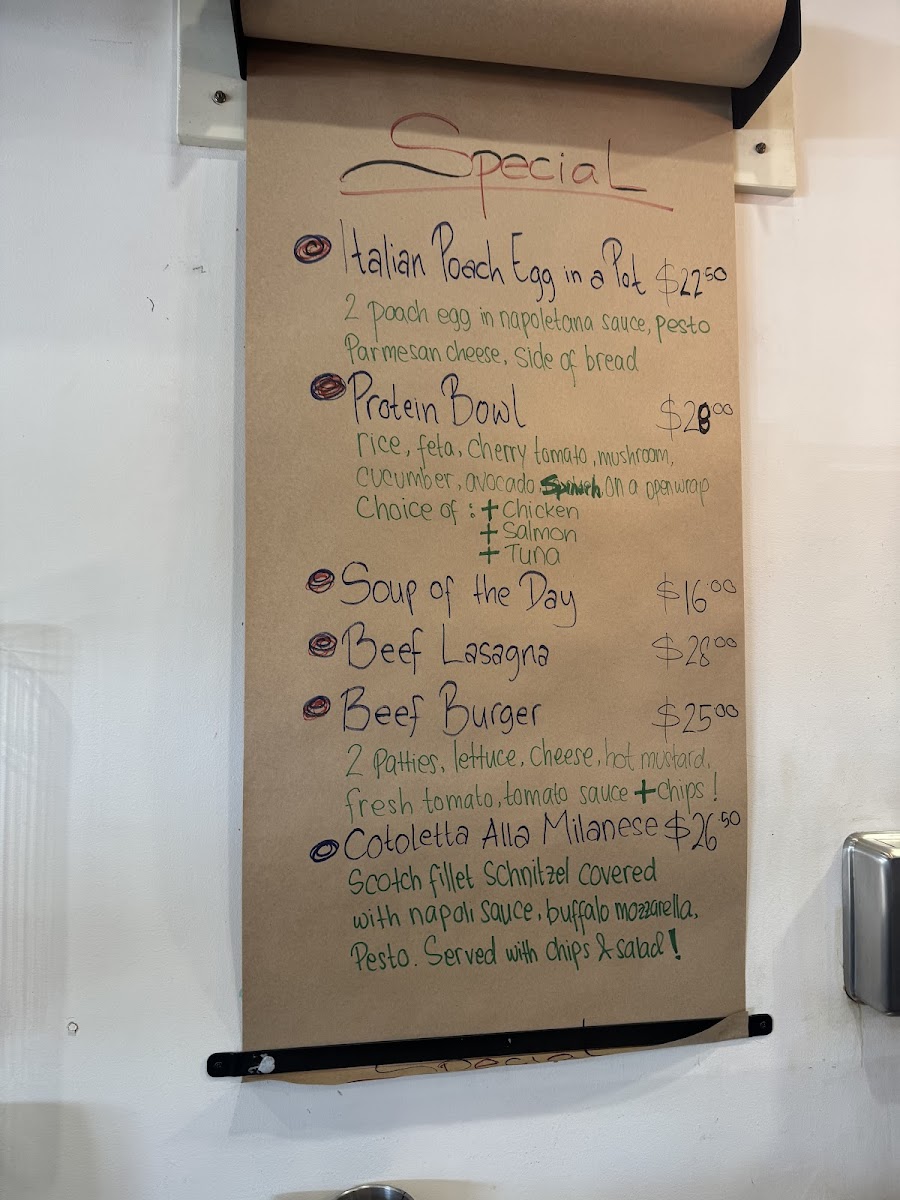 Special
Italian Poach Egg in a Pot $22.50
2 poach egg in napoletana sauce, pesto
Parmesan cheese, side of bread
Protein Bowl $28.00
rice, feta, cherry tomato, mushroom,
cucumber, avocado Spinach on a open wrap
Choice of : + Chicken
+ Salmon
+ Tuna
Soup of the Day $16.00
Beef Lasagna $28.00
Beef Burger $25.00
2 Patties, lettuce, cheese, hot mustard,
fresh tomato, tomato sauce + chips !
Cotoletta Alla Milanese $26.50
Scotch fillet Schnitzel covered
with napoli sauce, buffalo mozzarella,
Pesto. Served with chips & salad !
Special